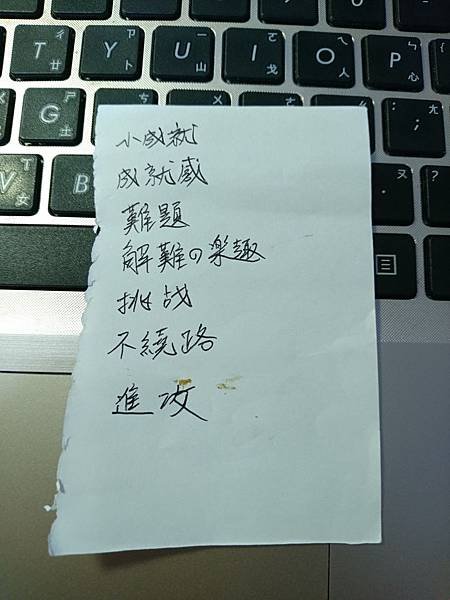 小成就
成就感
難題
解難の楽趣
挑战
不繞路
進攻
T ㄔ 廿
Y ㄗ 卜
U ㄧ 山
I ㄛ 戈
O ㄟ 人
P ㄣ 心
G ㄕ 土
V ㄒ 女
B